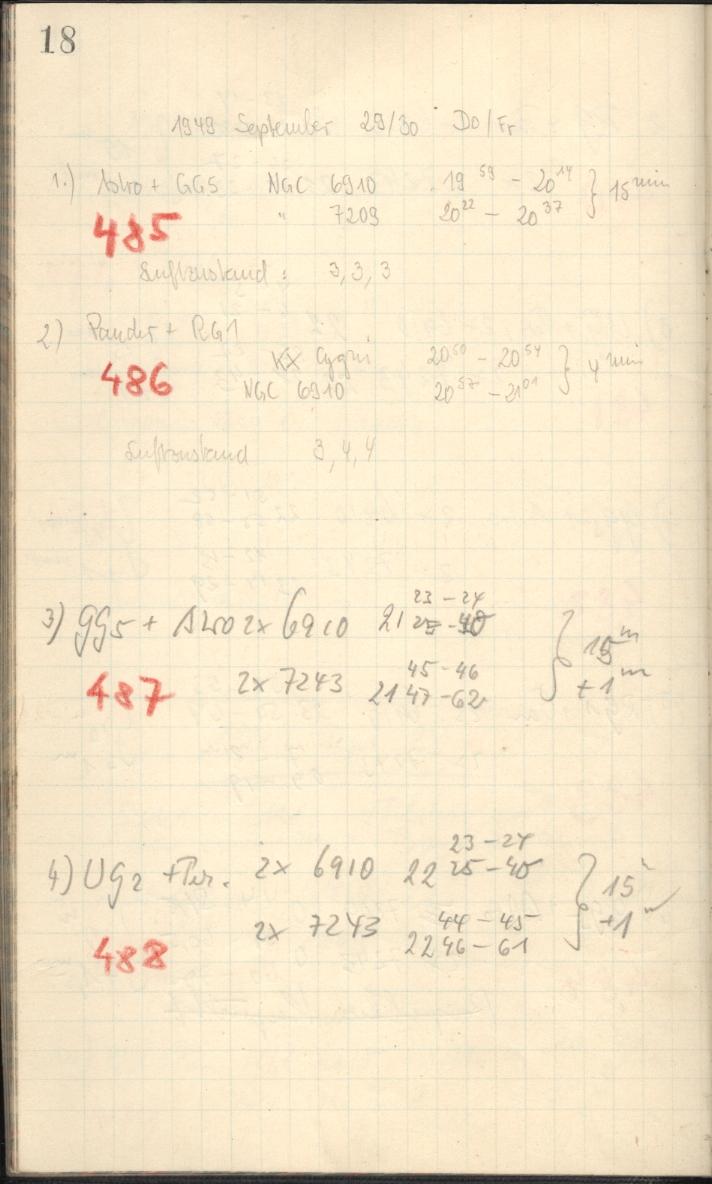 18
1949 September 29/30 Do/Fr
1.) Astro + GG5 NGC 6910 19 59 - 20 14 } 15 min
485 " 7209 20 22 - 20 37
Luftzustand : 3, 3, 3
2) Pander + RG1
KX Cygni 20 50 - 20 54 } 4 min
486 NGC 6910 20 57 - 21 01
Luftzustand 3, 4, 4
23 - 24
3) GG5 + Astro 2x 6910 21 25 - 40 } 15 m
45 - 46 + 1 m
487 2x 7243 21 47 - 62
23 - 24
4) UG2 + 2x 6910 22 25 - 40 } 15
44 - 45 +1 m
2x 7243 22 46 - 61
488